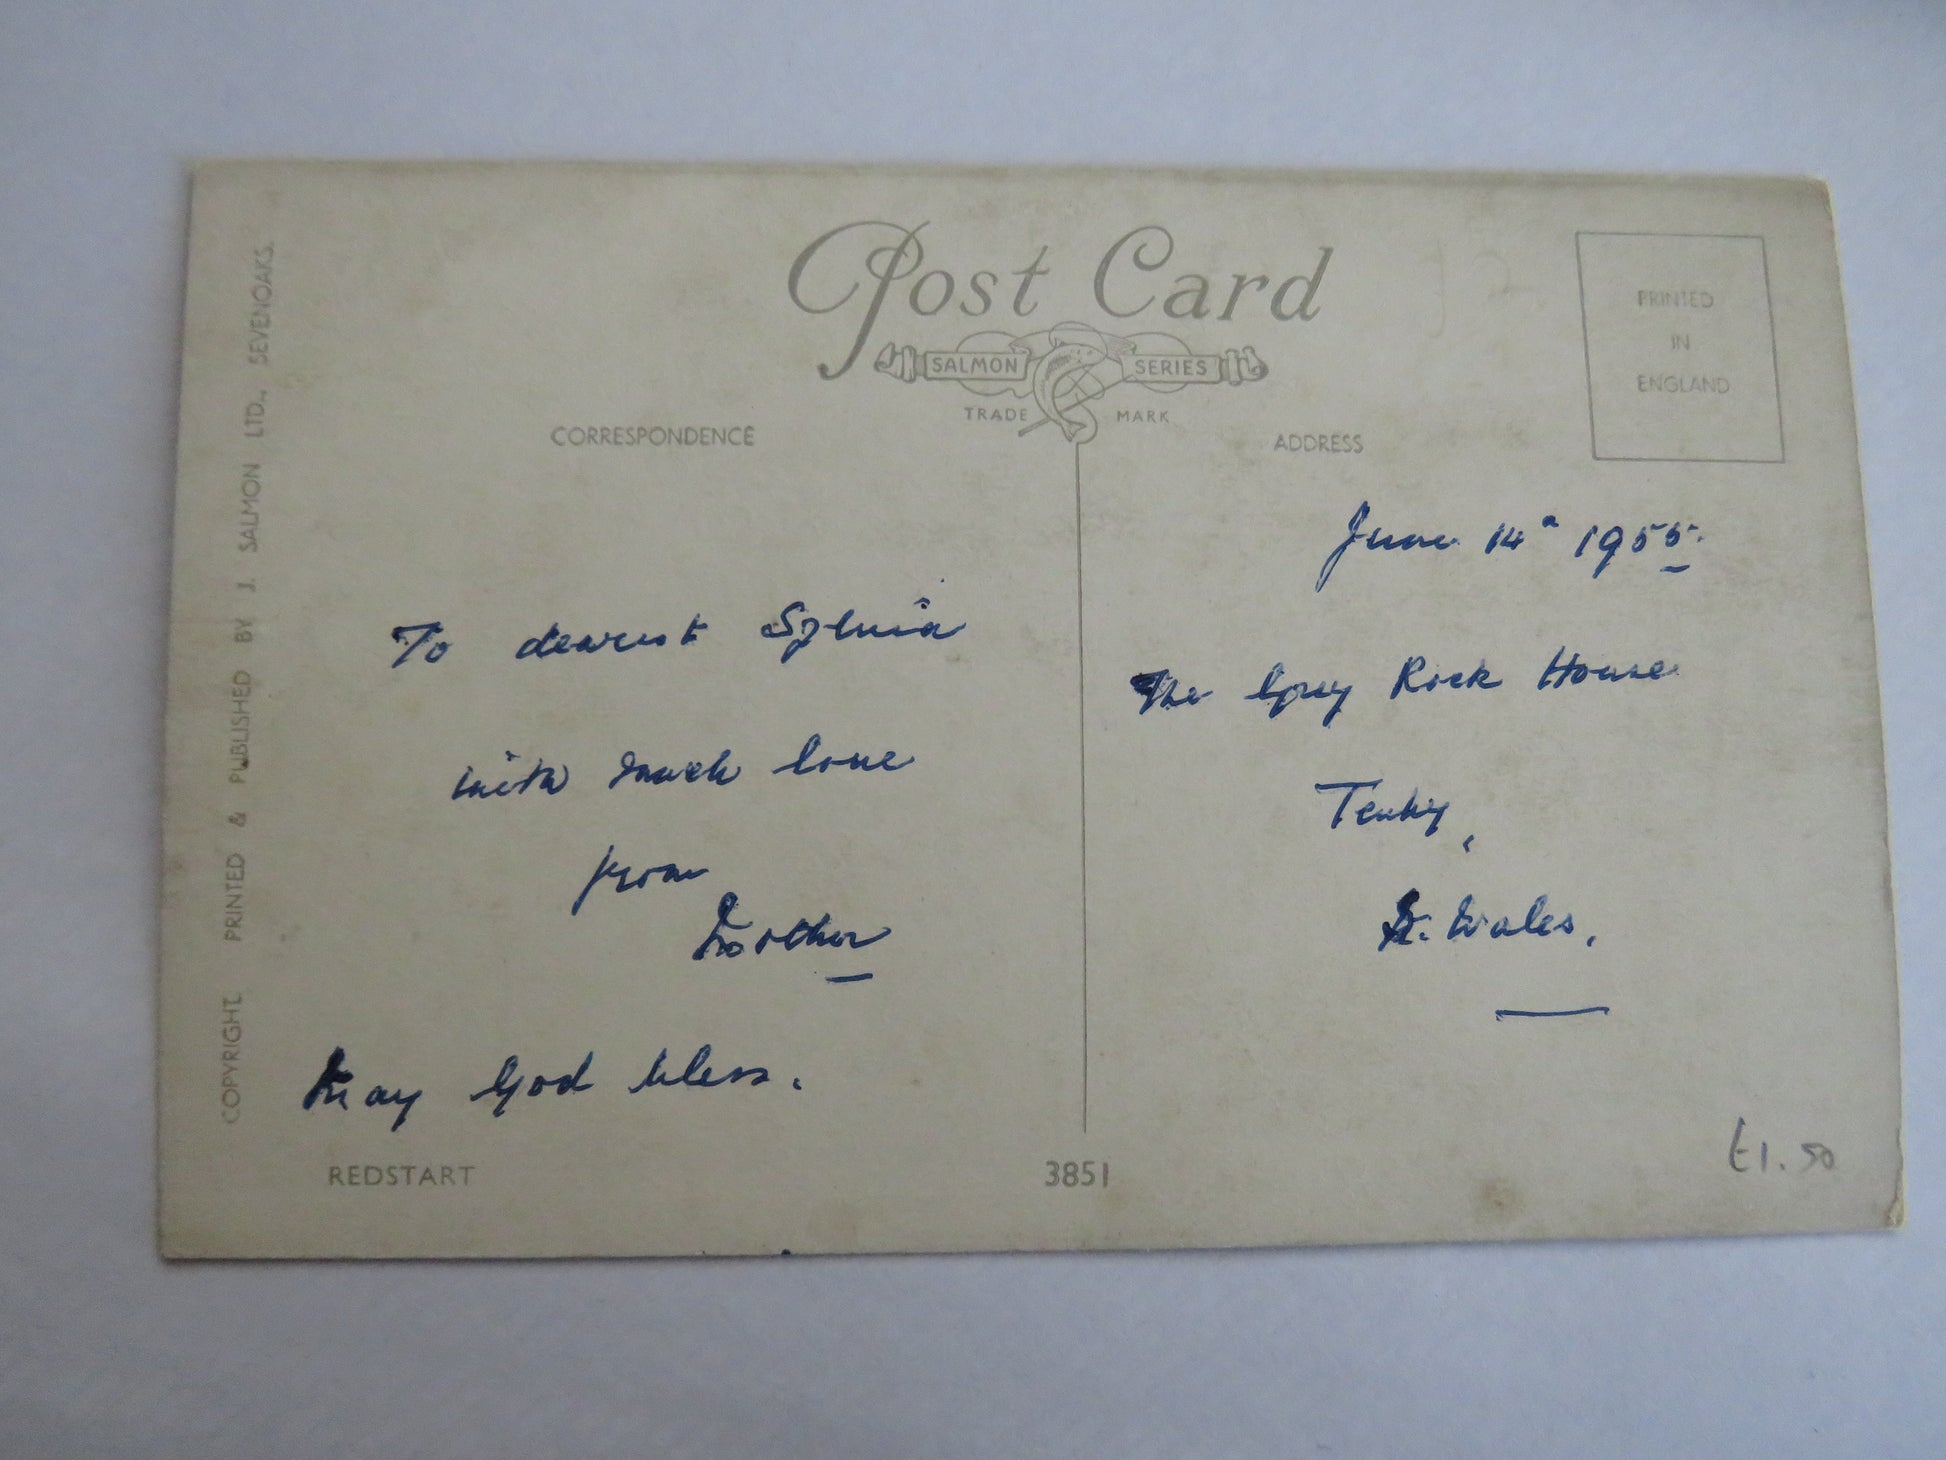 Post Card
SALMON SERIES
TRADE MARK
CORRESPONDENCE
ADDRESS
PRINTED
IN
ENGLAND
COPYRIGHT. PRINTED & PUBLISHED BY J. SALMON LTD., SEVENOAKS.
To dearest Sylvia
with much love
from
May God bless.
June 14th 1955.
The Grey Rock House
Tenby,
Wales.
REDSTART
3851
£1.50